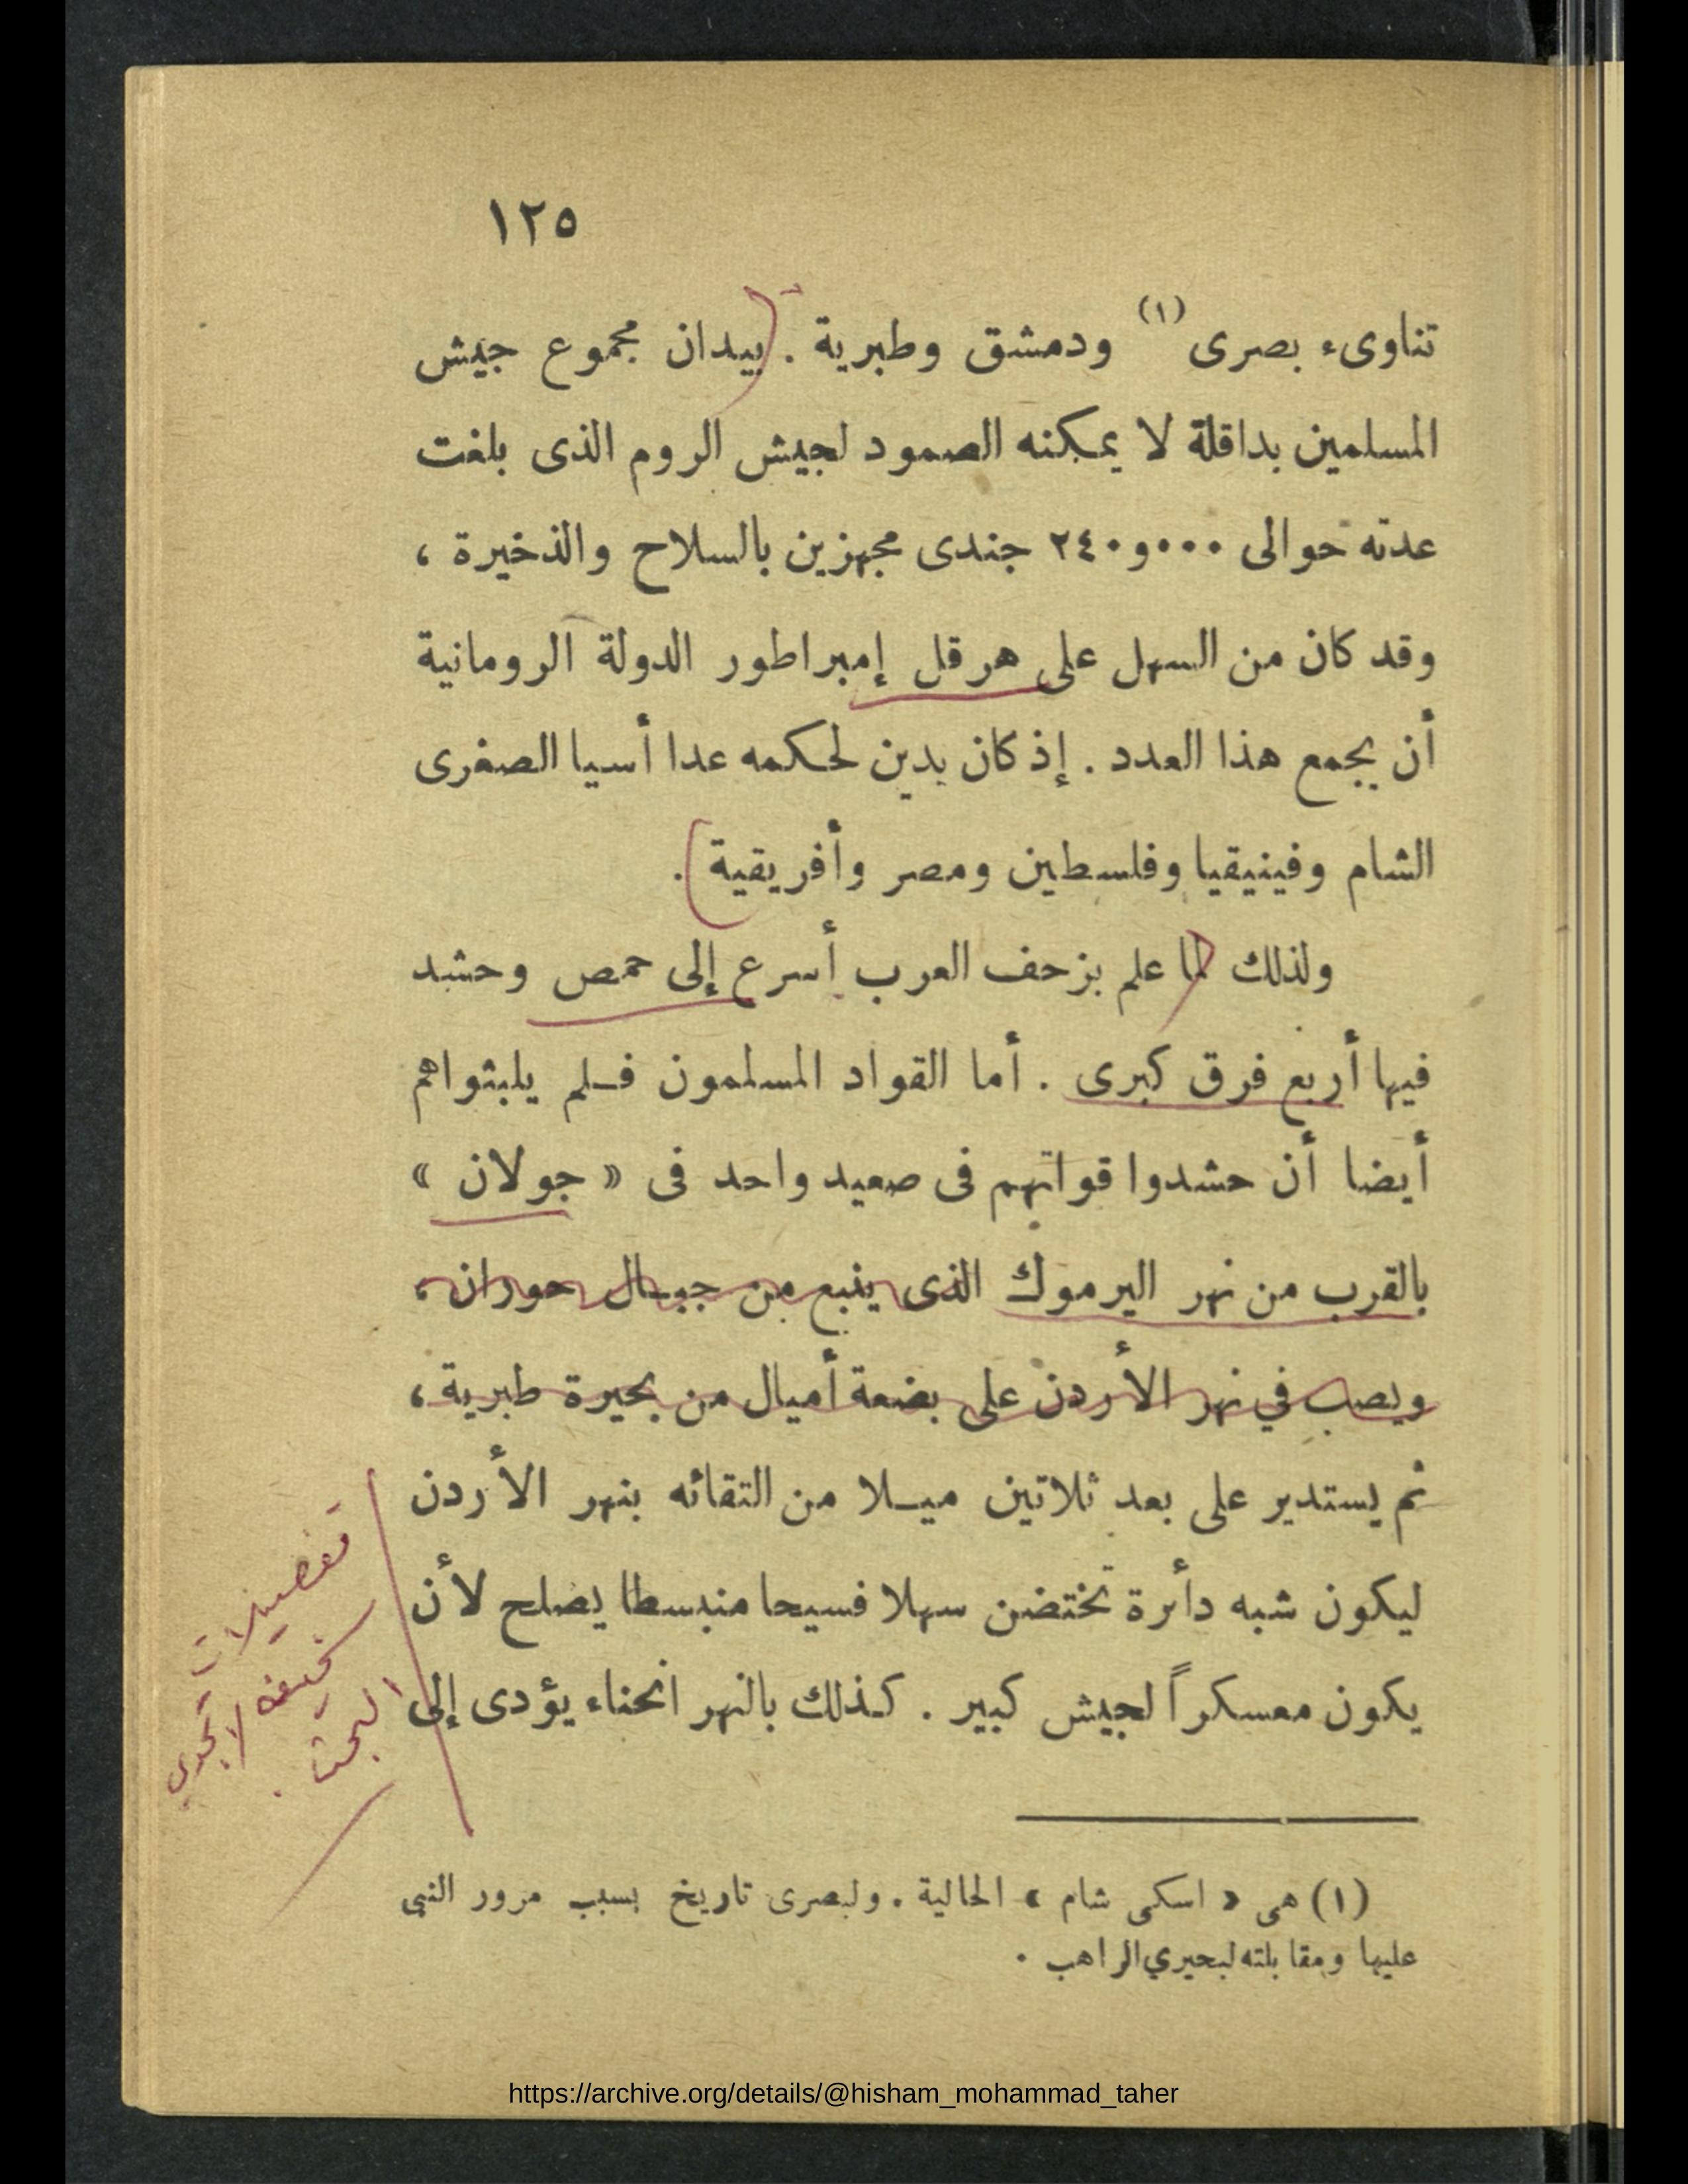 ١٢٥
تناوىء بصرى (١) ودمشق وطبرية . بيدان مجموع جيش
المسلمين بداقلة لا يمكنه الصمود لجيش الروم الذى بلغت
عدته حوالى ٢٤٠و٠٠٠ جندى مجهزين بالسلاح والذخيرة ،
وقد كان من السهل على هرقل إمبراطور الدولة الرومانية
أن يجمع هذا العدد . إذ كان يدين لحكمه عدا أسيا الصغرى
الشام وفينيقيا وفلسطين ومصر وأفريقية .
ولذلك لما علم بزحف العرب أسرع إلى حمص وحشد
فيها أربع فرق كبرى . أما القواد المسلمون فلم يلبثواهم
أيضا أن حشدوا قواتهم فى صعيد واحد فى « جولان »
بالقرب من نهر اليرموك الذى ينبع من جبال حوران ،
ويصب في نهر الأردن على بضعة أميال من بحيرة طبرية ،
ثم يستدير على بعد ثلاتين ميلا من التقائه بنهر الأردن
ليكون شبه دأىرة تختضن سهلا فسيحا منبسطا يصلح لأن
يكون معسكراً لجيش كبير . كذلك بالنهر انحناء يؤدى إلى
تفصيلات
سخيفة لا تجدي
البحث .
(١) هى « اسكى شام » الحالية . ولبصرى تاريخ بسبب مرور النبى
عليها ومقابلته لبحيري الراهب .
https://archive.org/details/@hisham_mohammad_taher